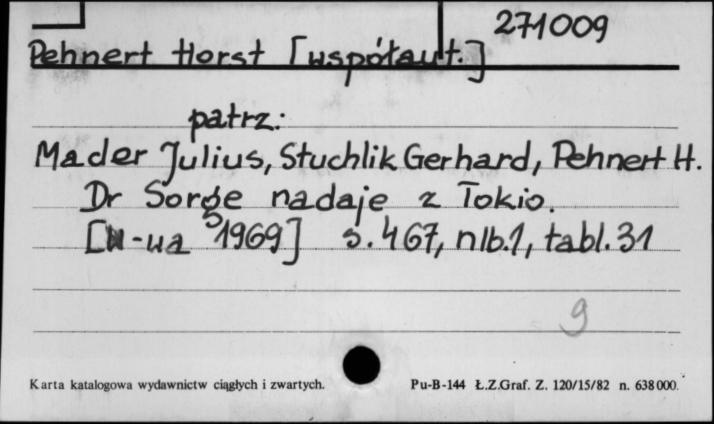 271009
Pehnert Horst [współaut.]
patrz:
Mader Julius, Stuchlik Gerhard, Pehnert H.
Dr Sorge nadaje z Tokio.
[W-wa 1969] s. 467, nlb.1, tabl.31
9
Karta katalogowa wydawnictw ciągłych i zwartych.
Pu-B-144 Ł.Z.Graf. Z. 120/15/82 n. 638 000.